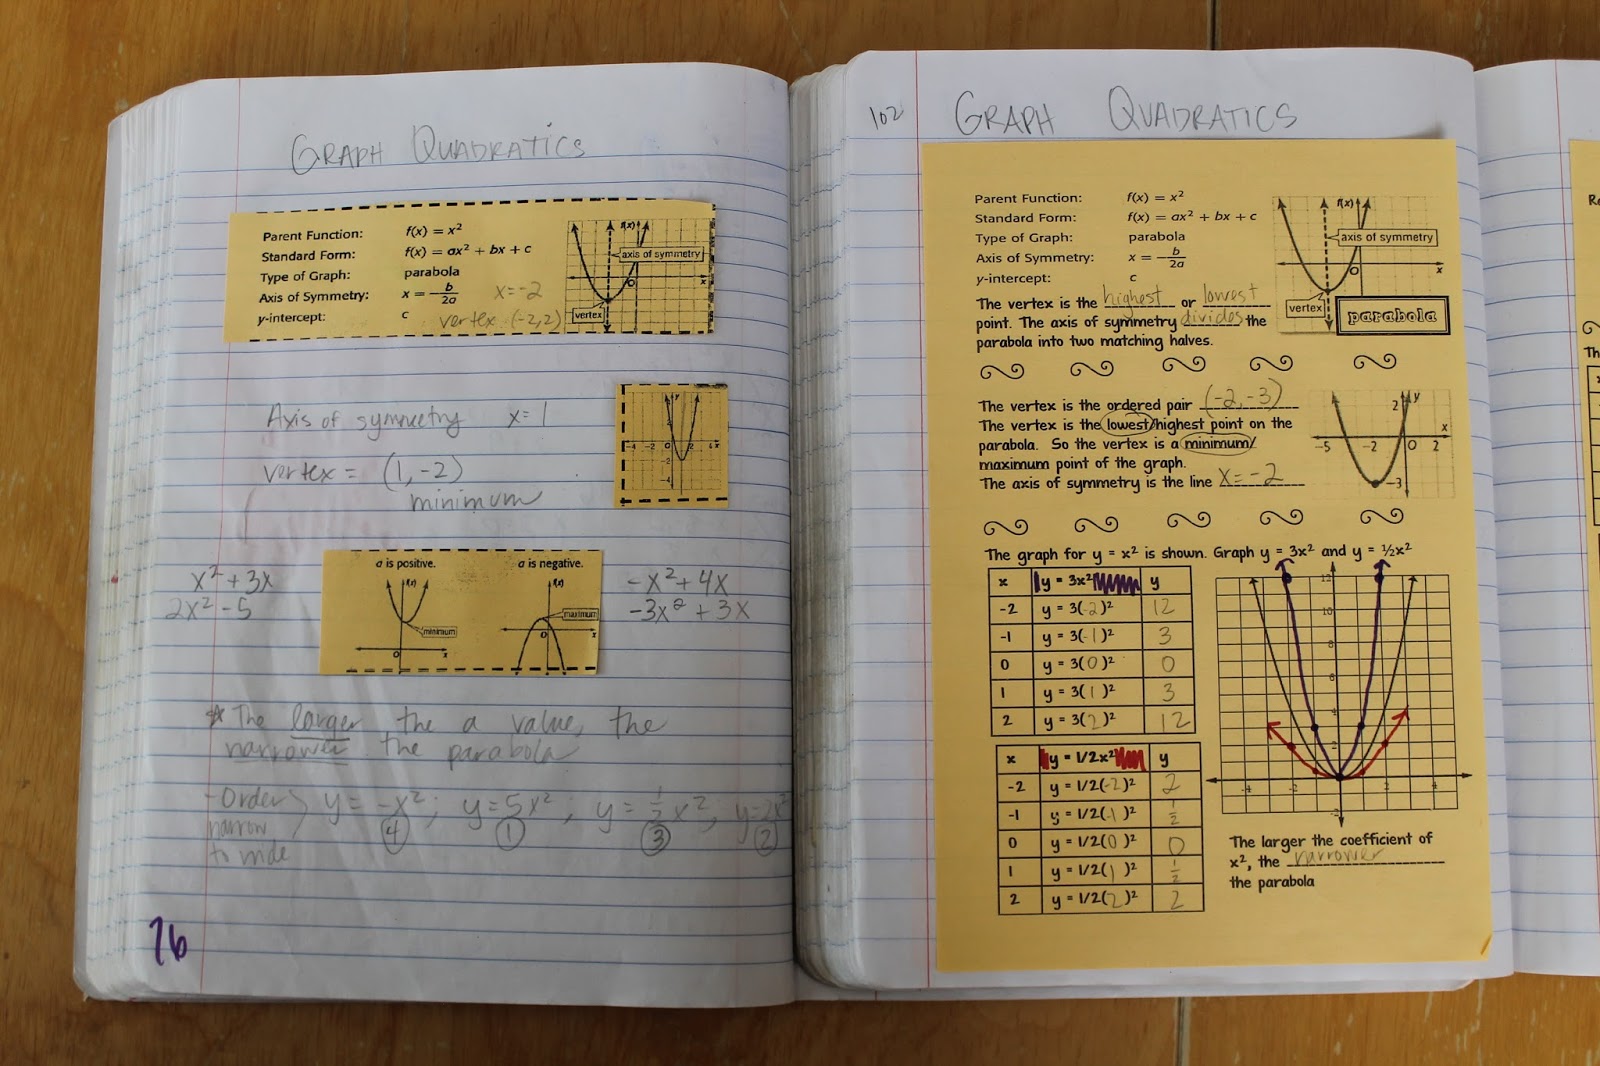 GRAPH QUADRATICS
Parent Function: f(x) = x²
Standard Form: f(x) = ax² + bx + c
Type of Graph: parabola
Axis of Symmetry: x = -b/2a x=-2
y-intercept: c vertex (-2,2)
f(x)
axis of symmetry
O x
vertex
Axis of symmetry x=1
vertex = (1,-2)
minimum
y
-4 -2 2 4 x
-2
-4
a is positive. a is negative.
f(x) f(x)
minimum maximum
O x O x
x²+3x -x²+4x
2x²-5 -3x²+3x
* The larger the a value, the
narrower the parabola
-Order y=-x²; y=5x²; y=½x²; y=2x²
narrow 4 1 3 2
to wide
76
102 GRAPH QUADRATICS
Parent Function: f(x) = x²
Standard Form: f(x) = ax² + bx + c
Type of Graph: parabola
Axis of Symmetry: x = -b/2a
y-intercept: c
The vertex is the highest or lowest
point. The axis of symmetry divides the
parabola into two matching halves.
f(x)
axis of symmetry
O x
vertex
parabola
The vertex is the ordered pair (-2,-3)
The vertex is the lowest/highest point on the
parabola. So the vertex is a minimum/
maximum point of the graph.
The axis of symmetry is the line x=-2
2 y
x
-5 -2 O 2
-3
The graph for y = x² is shown. Graph y = 3x² and y = ½x²
x y = 3x² y
-2 y = 3(-2)² 12
-1 y = 3(-1)² 3
0 y = 3(0)² 0
1 y = 3(1)² 3
2 y = 3(2)² 12
x y = 1/2x² y
-2 y = 1/2(-2)² 2
-1 y = 1/2(-1)² ½
0 y = 1/2(0)² 0
1 y = 1/2(1)² ½
2 y = 1/2(2)² 2
12
10
8
6
4
2
-4 -2 2 4
-2
The larger the coefficient of
x², the narrower
the parabola
Th
x